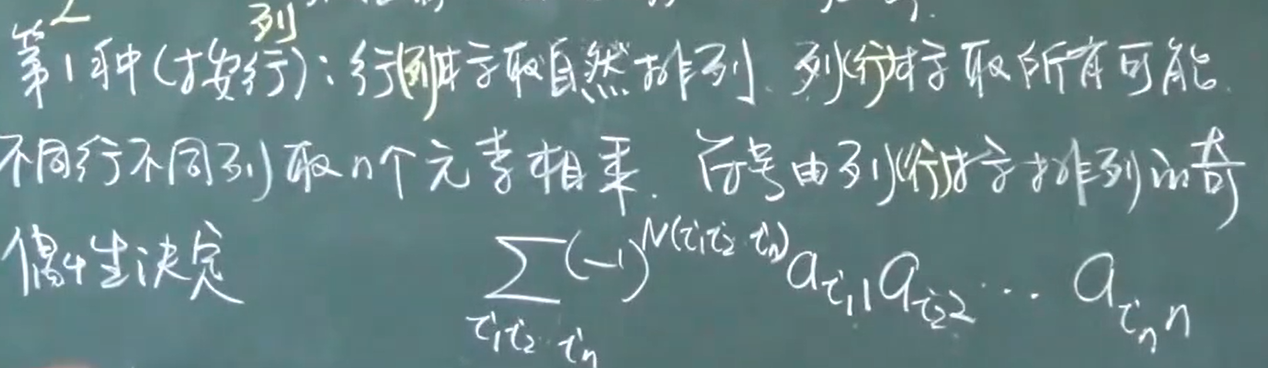 列
第1种(按行):行(列)标取自然排列.列(行)标取所有可能.
不同行不同列取n个元素相乘.符号由列(行)标排列的奇
偶性决定 $\sum_{i_1 i_2 \cdots i_n} (-1)^{N(i_1 i_2 \cdots i_n)} a_{i_1 1} a_{i_2 2} \cdots a_{i_n n}$